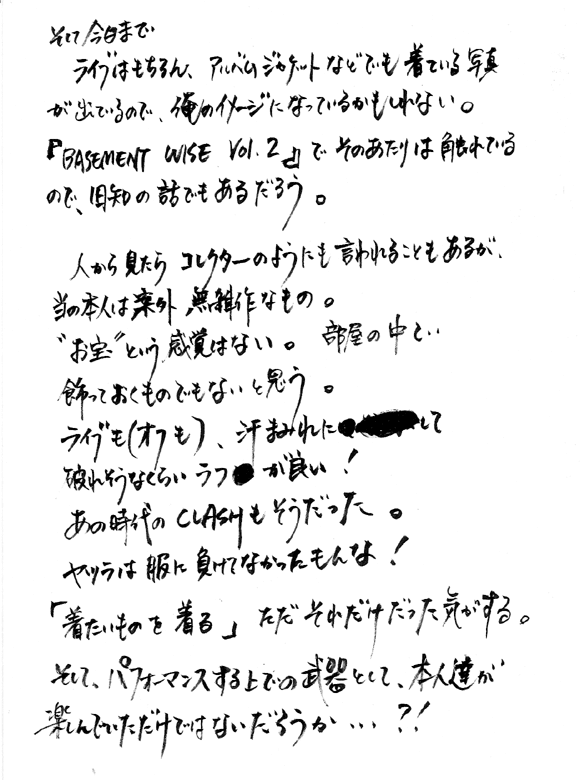 そして今日まで
ライブはもちろん、アルバムジャケットなどでも着ている写真
が出ているので、俺のイメージになっているかもしれない。
『BASEMENT WISE Vol.2』でそのあたりは触れている
ので、旧知の話でもあるだろう。
人から見たらコレクターのようにも言われることもあるが、
当の本人は案外、無雑作なもの。
"お宝"という感覚はない。 部屋の中で
飾っておくものでもないと思う。
ライブも(オフも)、汗まみれにして
破れそうなくらいラフが良い!
あの時代のCLASHもそうだった。
ヤツラは服に負けてなかったもんな!
「着たいものを着る」ただそれだけだった気がする。
そして、パフォーマンスする上での武器として、本人達が
楽しんでいただけではないだろうか…?!